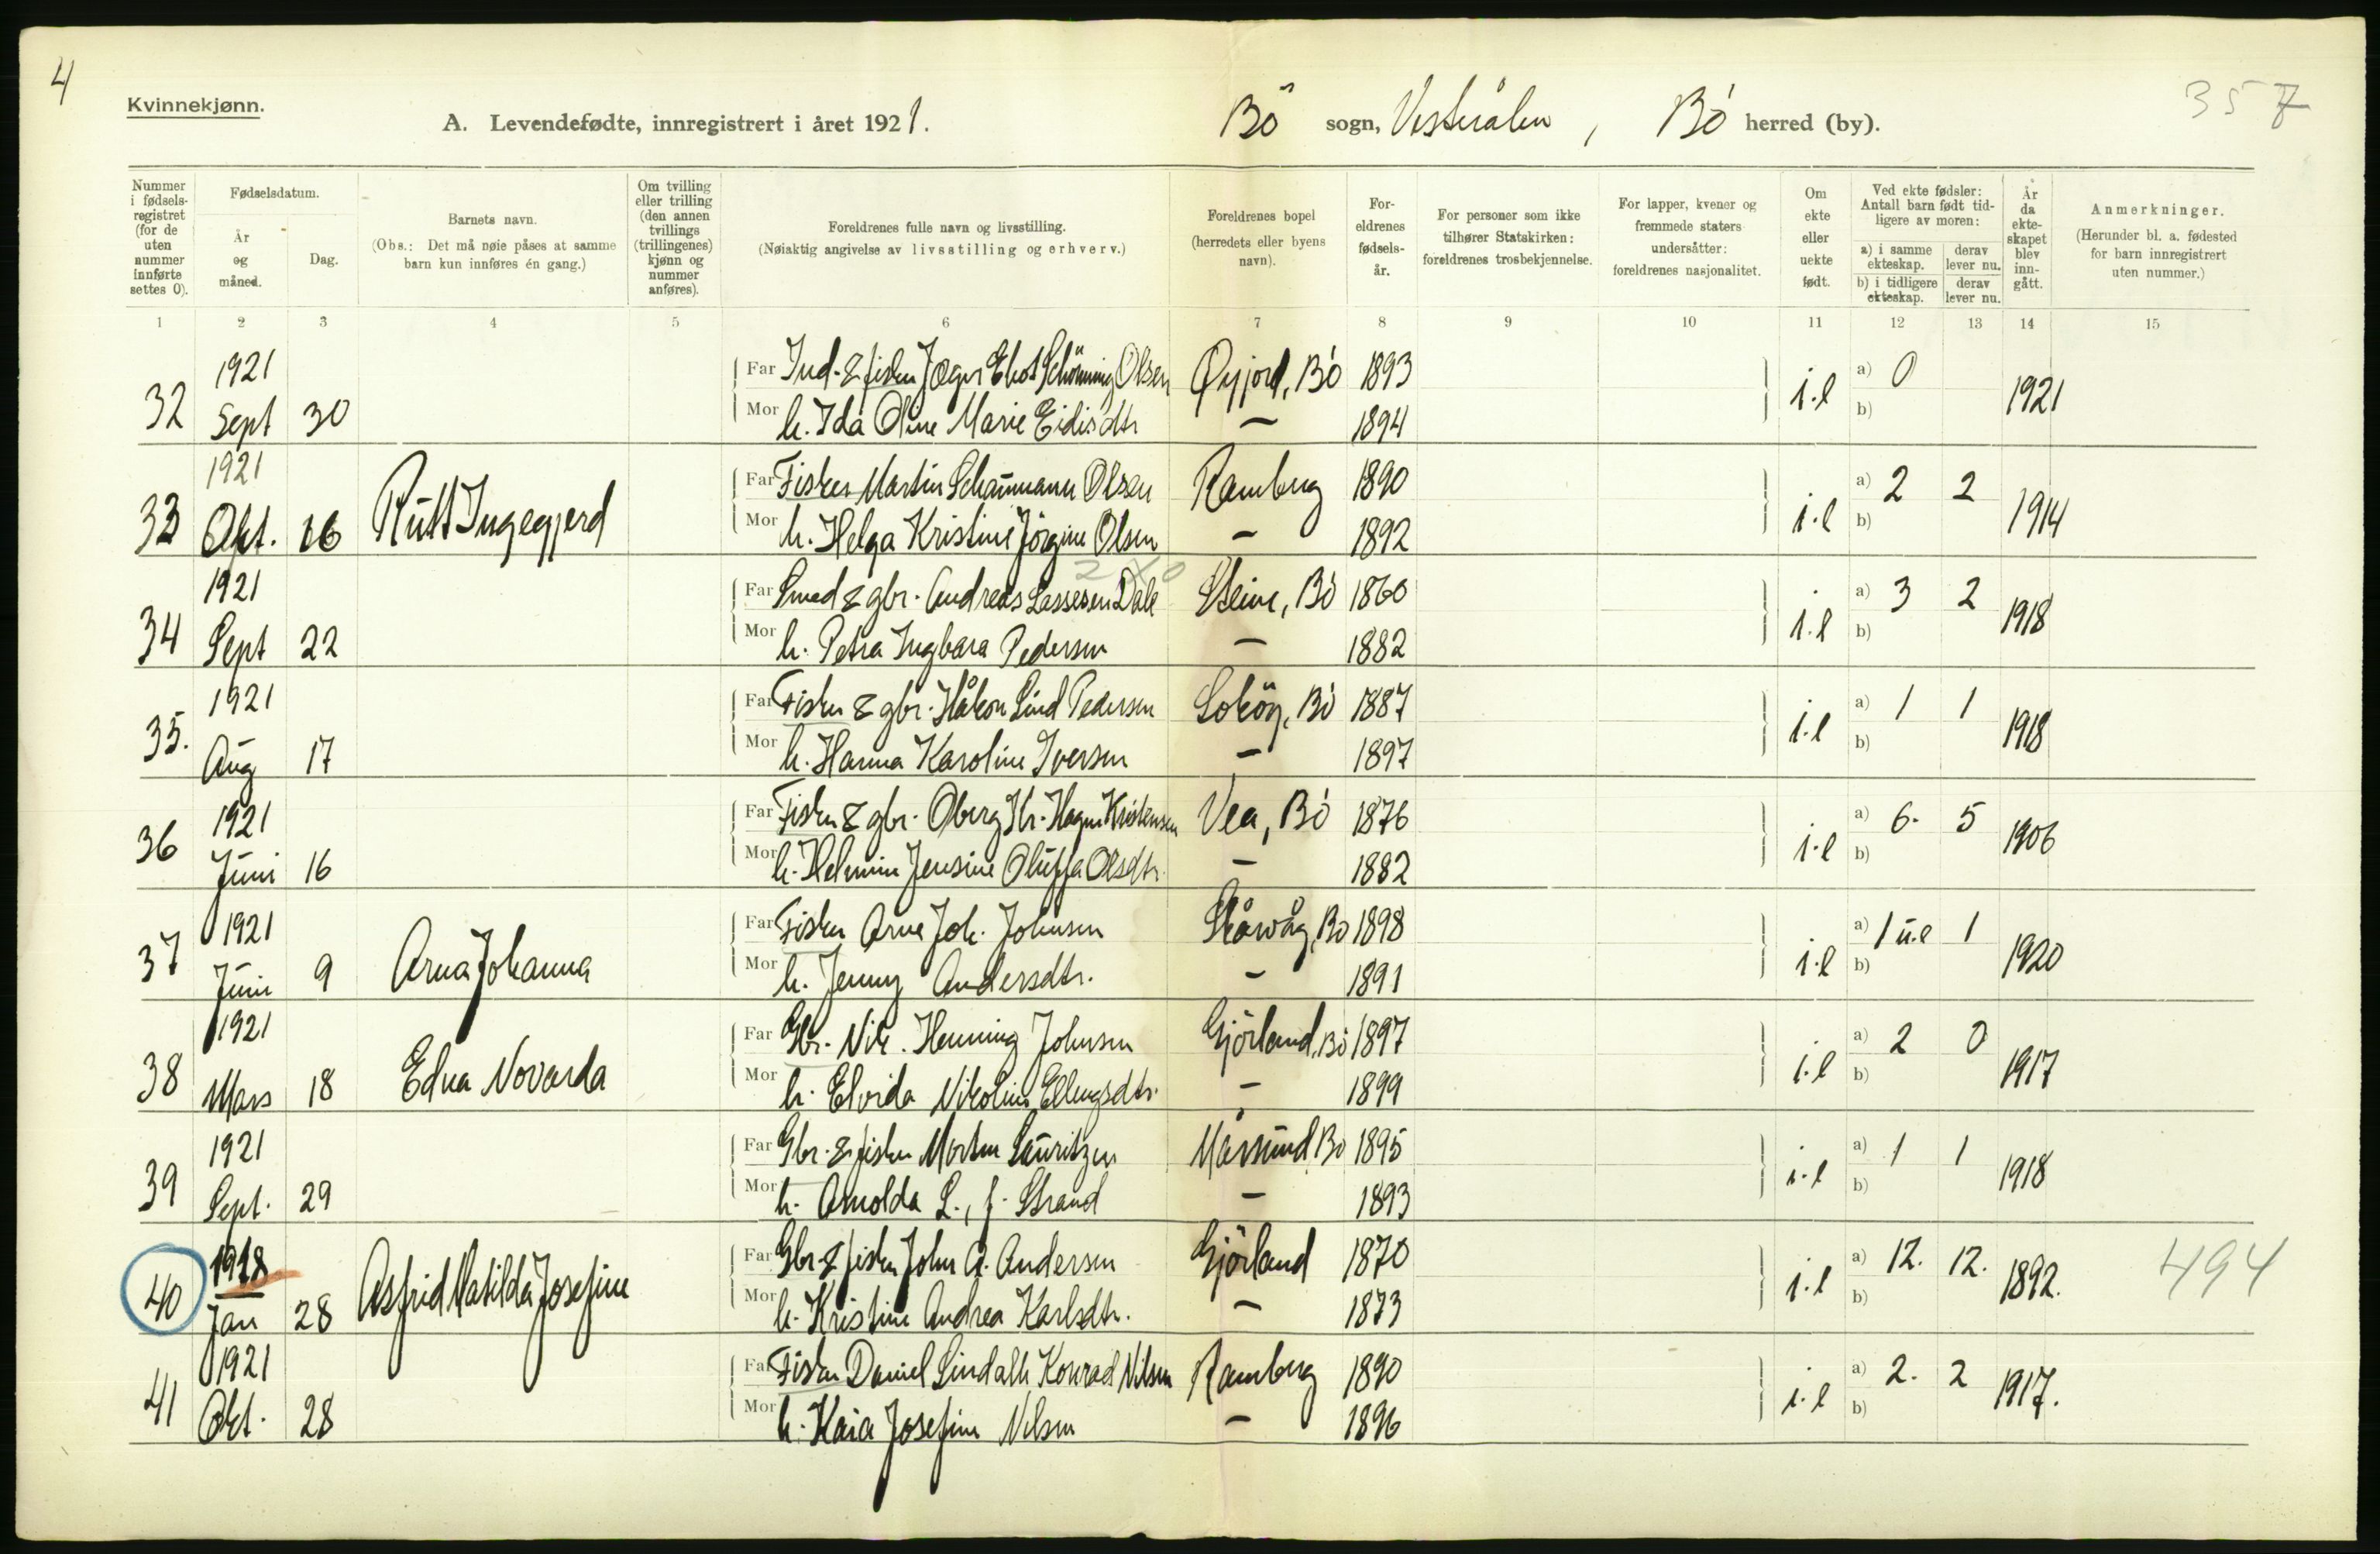 4
Kvinnekjønn.
A. Levendefødte, innregistrert i året 1921.
Bö sogn, Vesterålen, Bö herred (by).
357
Nummer i fødsels-registret (for de uten nummer innførte settes 0).
Fødselsdatum.
År og måned.
Dag.
Barnets navn.
(Obs.: Det må nøie påses at samme barn kun innføres én gang.)
Om tvilling eller trilling (den annen tvillings (trillingenes) kjønn og nummer anføres).
Foreldrenes fulle navn og livsstilling.
(Nøiaktig angivelse av livsstilling og erhverv.)
Foreldrenes bopel (herredets eller byens navn).
For-eldrenes fødsels-år.
For personer som ikke tilhører Statskirken: foreldrenes trosbekjennelse.
For lapper, kvener og fremmede staters undersåtter: foreldrenes nasjonalitet.
Om ekte eller uekte født.
Ved ekte fødsler: Antall barn født tid-ligere av moren:
a) i samme ekteskap.
derav lever nu.
b) i tidligere ekteskap.
derav lever nu.
År da ekte-skapet blev inn-gått.
Anmerkninger.
(Herunder bl. a. fødested for barn innregistrert uten nummer.)
1 2 3 4 5 6 7 8 9 10 11 12 13 14 15
32 1921 Sept 30
Far Ind. & fisker Schönning Olsen Bö 1893
Mor h. Ida Oline Marie Eidisdtr — 1894
i.l a) 0 b) 1921
33 1921 Okt. 16 Rutt Ingegjerd
Far Fisker Martin Schaumann Olsen Ramberg 1890
Mor h. Helga Kristine Jörgine Olsen — 1892
i.l a) 2 2 b) 1914
34 1921 Sept 22
Far Smed & gbr. Andreas Lassesen Dale Steine, Bö 1860
Mor h. Petra Ingbara Pedersen — 1882
i.l a) 3 2 b) 1918
35. 1921 Aug 17
Far Fisker & gbr. Håkon Lind Pedersen Bö 1887
Mor h. Hanna Karoline Iversen — 1897
i.l a) 1 1 b) 1918
36 1921 Juni 16
Far Fisker & gbr. Oberg Kr. Hagen Kristensen Vea, Bö 1876
Mor h. Helmine Jensine Oluffa Olsdtr. — 1882
i.l a) 6. 5 b) 1906
37 1921 Juni 9 Arna Johanna
Far Fisker Arne Joh. Johnsen Skårvåg, Bö 1898
Mor h. Jenny Andersdtr. — 1891
i.l a) 1 u.e 1 b) 1920
38 1921 Mars 18 Edna Novarda
Far Gbr. Nik. Henning Johnsen Gjörland, Bö 1897
Mor h. Elvida Nikoline Ellingsdtr. — 1899
i.l a) 2 0 b) 1917
39 1921 Sept. 29
Far Gbr. & fisker Morten Lauritzen Mårsund Bö 1895
Mor h. Arnolda L., f. Strand — 1893
i.l a) 1 1 b) 1918
40 1918 Jan 28 Asfrid Matilda Josefine
Far Gbr & fisker John A. Andersen Gjörland 1870
Mor h. Kristine Andrea Karlsdtr. — 1873
i.l a) 12. 12. b) 1892. 494
41 1921 Okt. 28
Far Fisker Daniel Lindahl Konrad Nilsen Ramberg 1890
Mor h. Kaia Josefine Nilsen — 1896
i.l a) 2. 2 b) 1917.